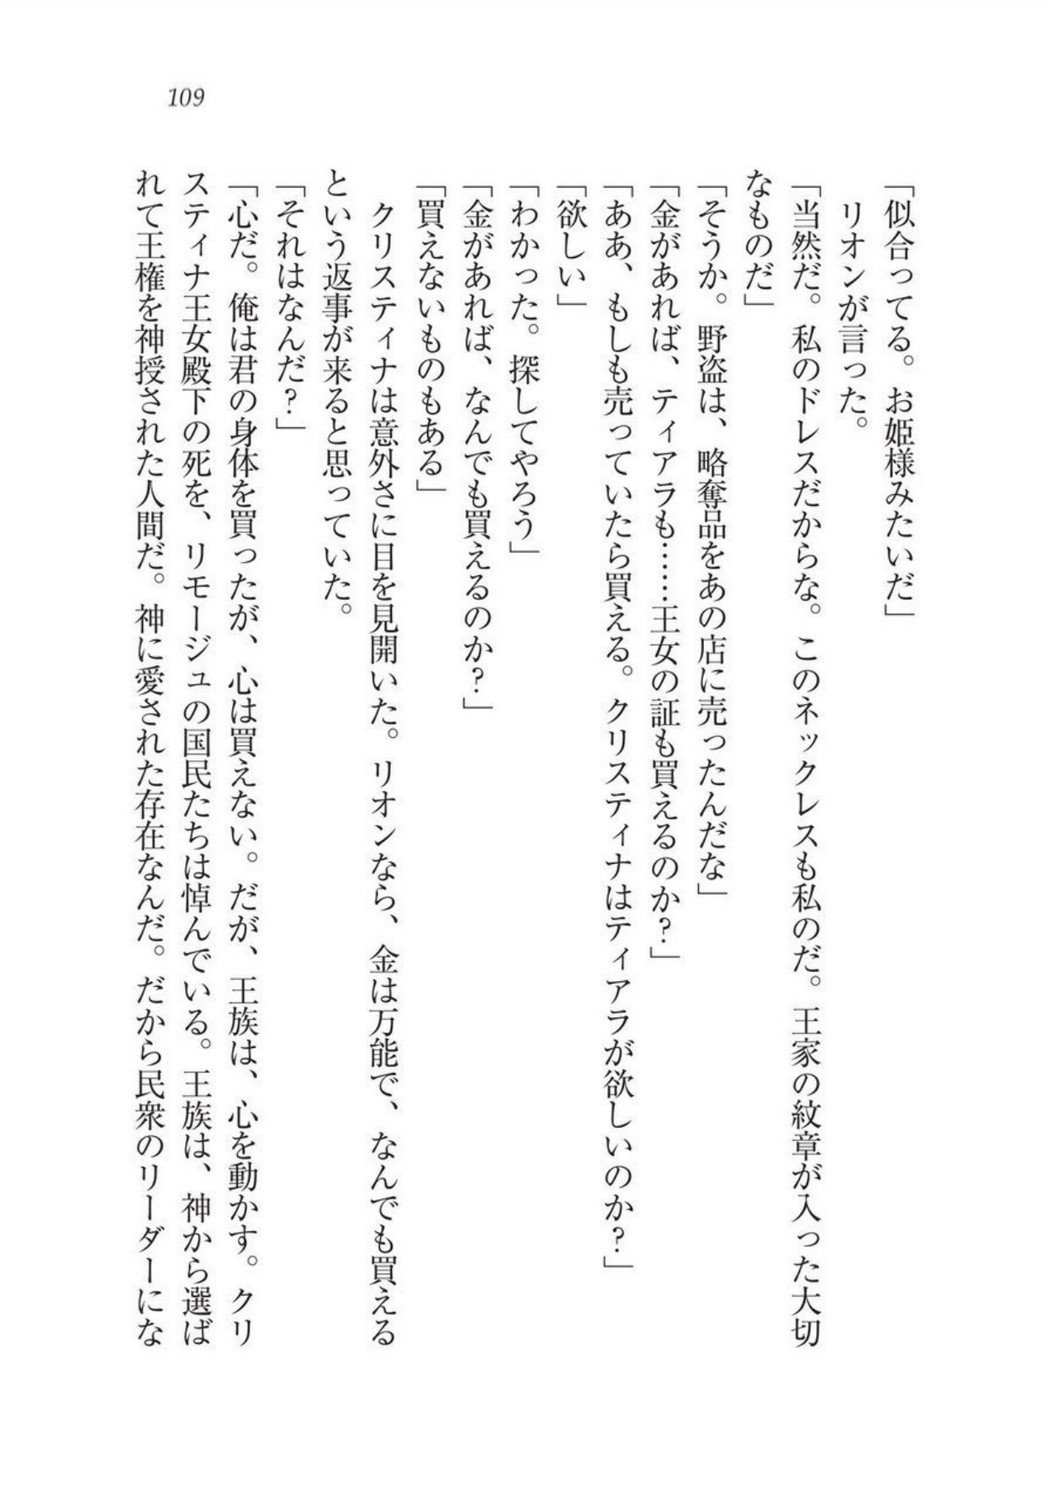 109
「似合ってる。お姫様みたいだ」
リオンが言った。
「当然だ。私のドレスだからな。このネックレスも私のだ。王家の紋章が入った大切
なものだ」
「そうか。野盗は、略奪品をあの店に売ったんだな」
「金があれば、ティアラも……王女の証も買えるのか?」
「ああ、もしも売っていたら買える。クリスティナはティアラが欲しいのか?」
「欲しい」
「わかった。探してやろう」
「金があれば、なんでも買えるのか?」
「買えないものもある」
クリスティナは意外さに目を見開いた。リオンなら、金は万能で、なんでも買える
という返事が来ると思っていた。
「それはなんだ?」
「心だ。俺は君の身体を買ったが、心は買えない。だが、王族は、心を動かす。クリ
スティナ王女殿下の死を、リモージュの国民たちは悼んでいる。王族は、神から選ば
れて王権を神授された人間だ。神に愛された存在なんだ。だから民衆のリーダーにな